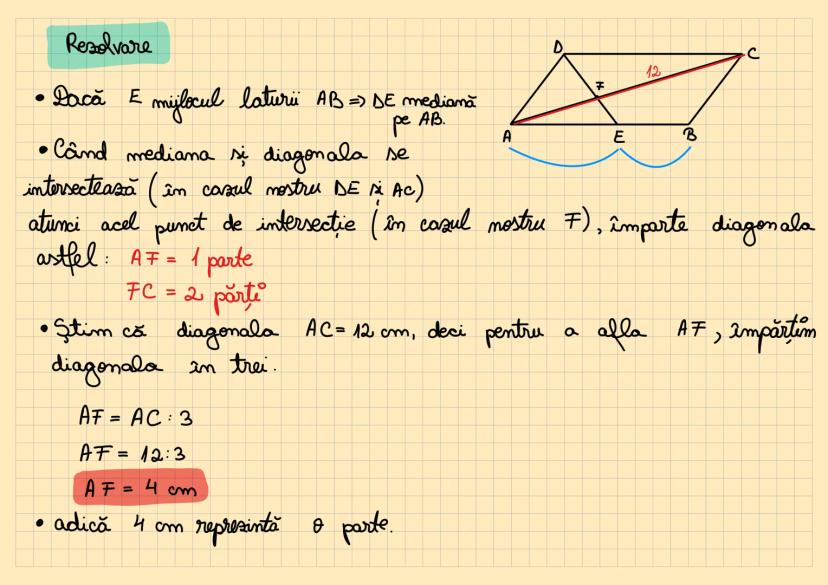 Rezolvare
D
C
12
F
A
E
B
• Dacă E mijlocul laturii AB => DE mediană
pe AB.
• Când mediana și diagonala se
intersectează (în cazul nostru DE și AC)
atunci acel punct de intersecție (în cazul nostru F), împarte diagonala
astfel: AF = 1 parte
FC = 2 părți
• Știm că diagonala AC = 12 cm, deci pentru a afla AF, împărțim
diagonala în trei.
AF = AC : 3
AF = 12:3
AF = 4 cm
• adică 4 cm reprezintă o parte.